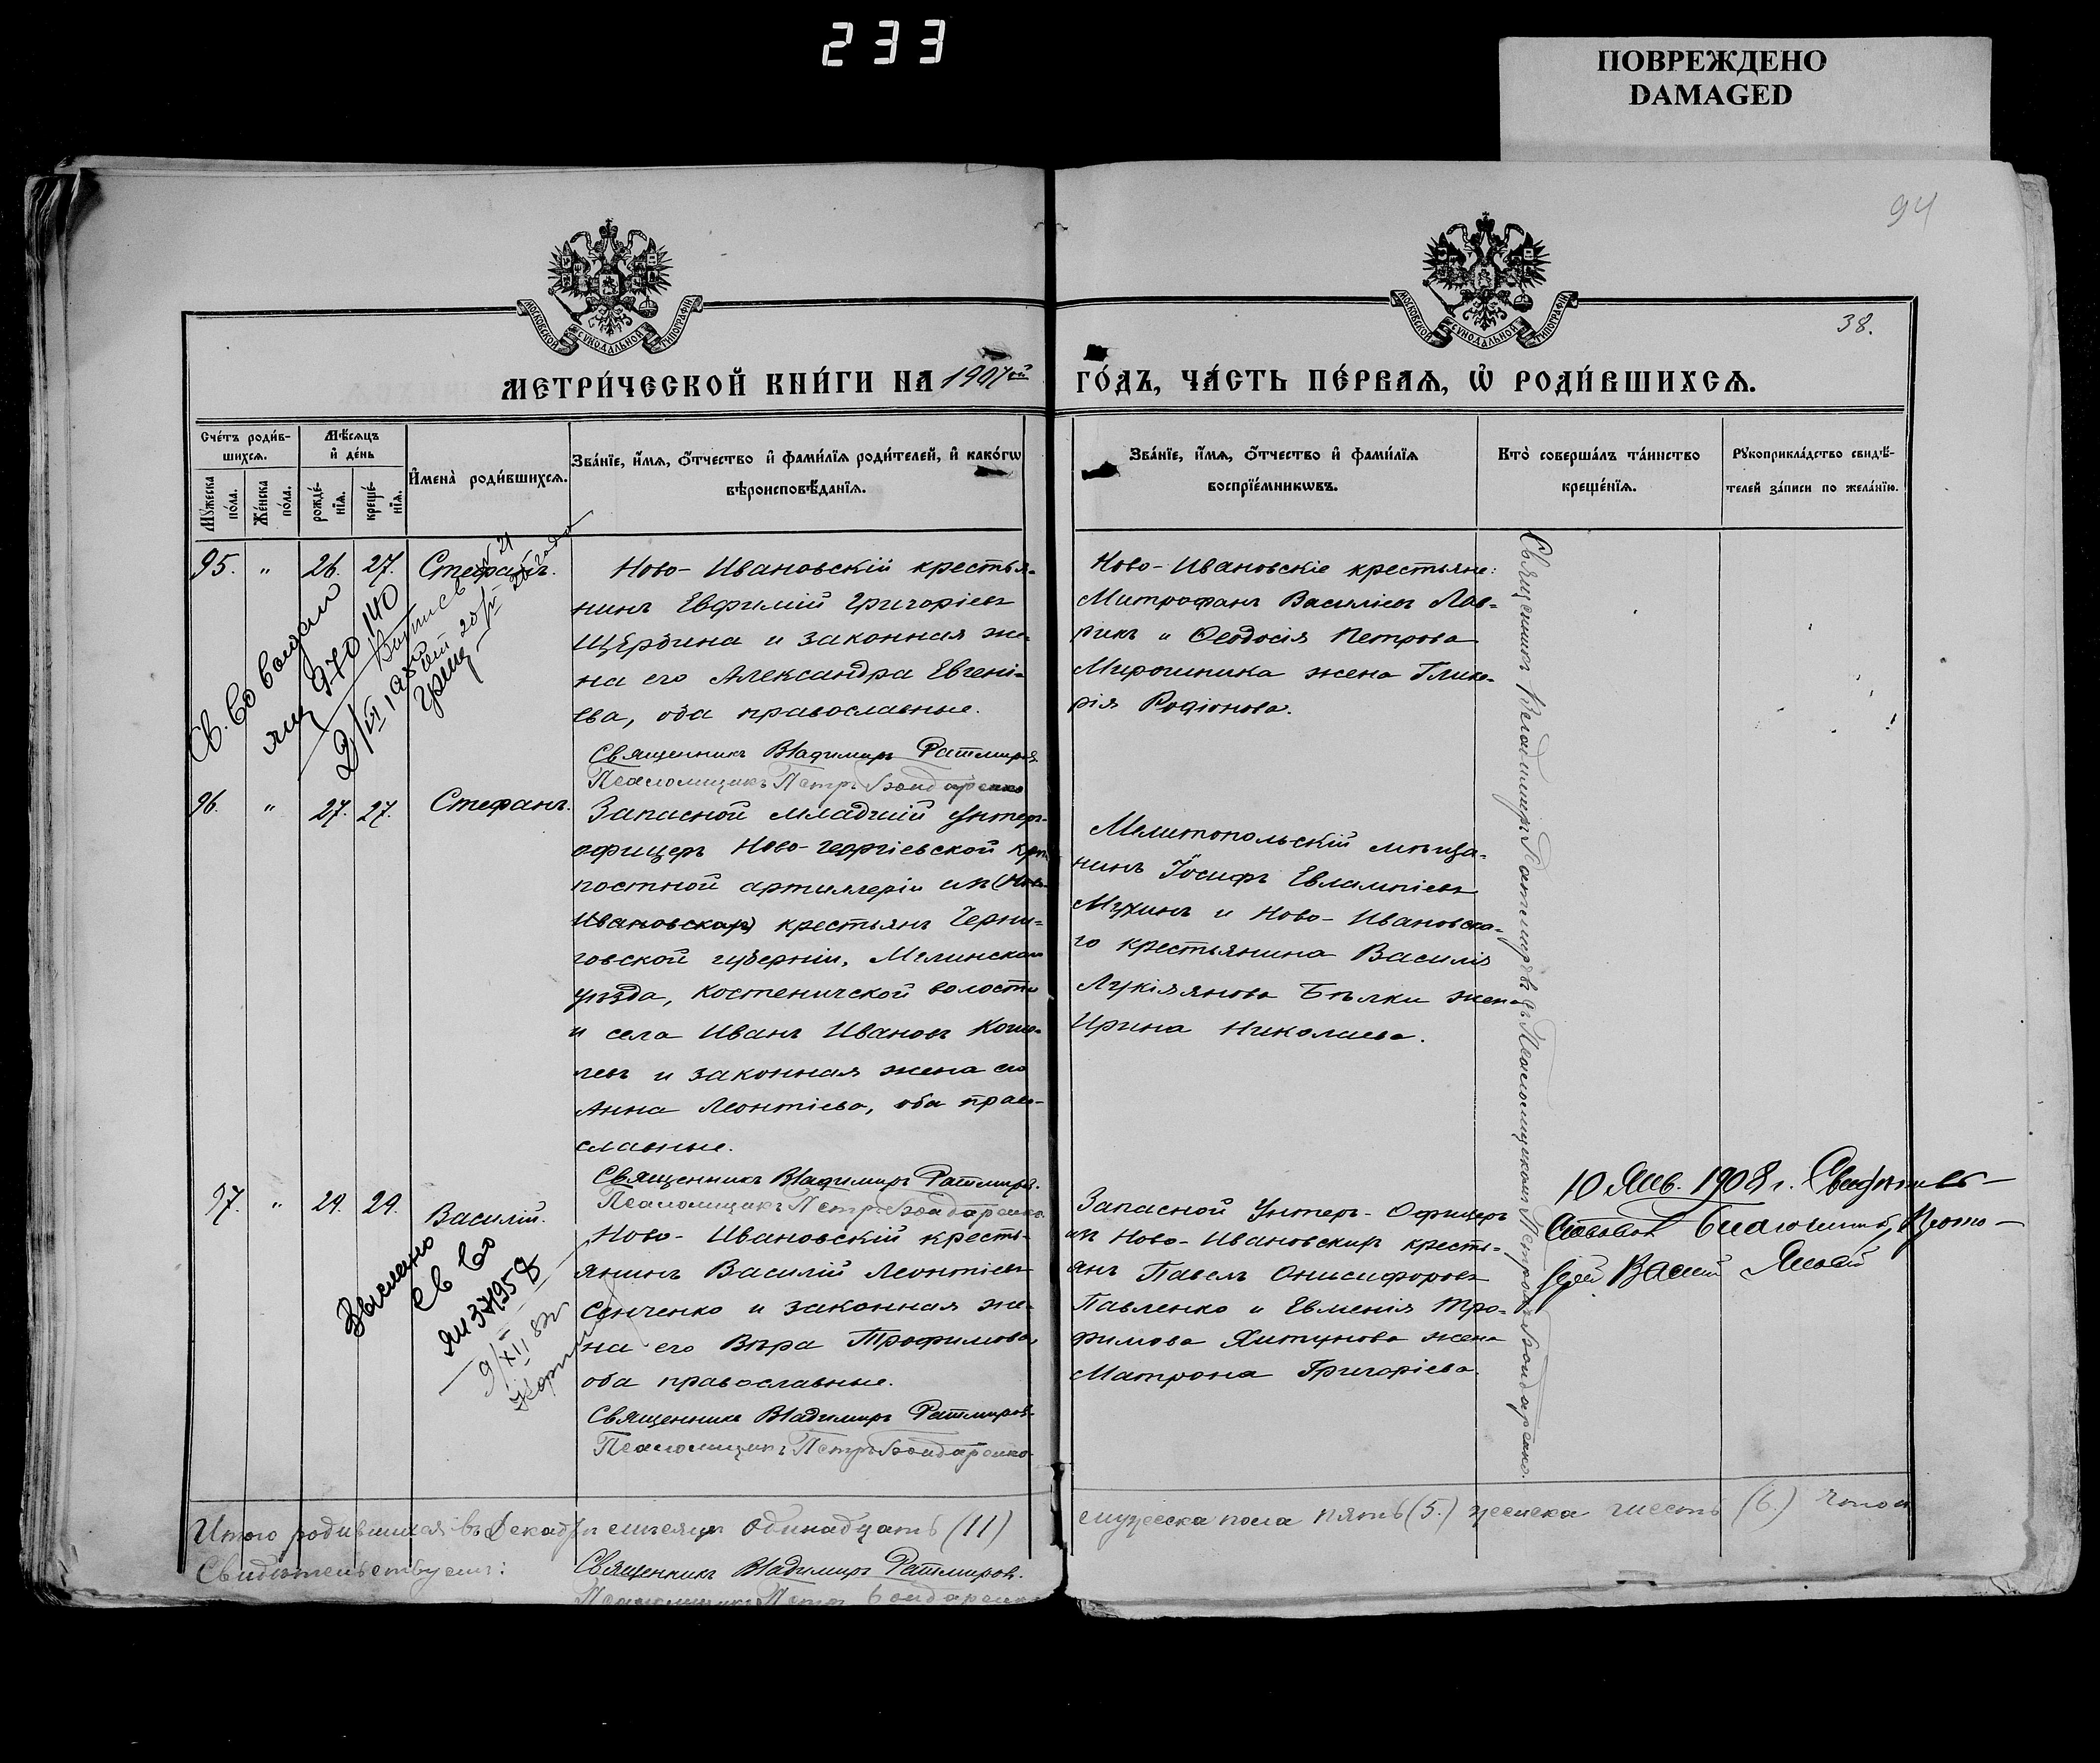 233
ПОВРЕЖДЕНО
DAMAGED
94
МОСКОВСКОЙ СУНОДАЛЬНОЙ ТИПОГРАФІИ
МОСКОВСКОЙ СУНОДАЛЬНОЙ ТИПОГРАФІИ
38.
МЕТРИ́ЧЕСКОЙ КНИ́ГИ НА 1907ой ГО́ДЪ, ЧА́СТЬ ПЕ́РВАѦ, Ѡ РОДИ́ВШИХСѦ.
Сче́тъ роди́в-
шихсѧ.
Мѣ́сѧцъ
и҆ де́нь
Мꙋ́жеска
по́ла.
Же́нска
по́ла.
рожде́-
нїѧ.
креще́-
нїѧ.
И҆мена̀ роди́вшихсѧ.
Зва́нїе, и҆́мѧ, ѻ҆́тчество и҆ фами́лїѧ роди́телей, и҆ како́гѡ
вѣроисповѣ́данїѧ.
Зва́нїе, и҆́мѧ, ѻ҆́тчество и҆ фами́лїѧ
воспрїе́мникѡвъ.
Кто̀ соверша́лъ та́инство
креще́нїѧ.
Рꙋкоприкла́дство свидѣ́-
телей за́писи по жела́нїю.
95. " 26. 27. Стефанъ.
Ново-Ивановскій крестья-
нинъ Евфимій Григоріевъ
Щербина и законная же-
на его Александра Евгені-
ева, оба православные.
Священникъ Владимиръ Ратмировъ
Псаломщикъ Петръ Бондаренко
Ново-Ивановскіе крестьяне:
Митрофанъ Василіевъ Лав-
рикъ и Ѳеодосія Петрова
Мирошника жена Глике-
рія Родіонова.
Св. во выдано
ЯЩ 970140
96. " 27. 27. Стефанъ.
Запасной младшій унтеръ-
офицеръ Ново-Георгіевской крѣ-
постной артиллеріи изъ (Ново-
Ивановскихъ) крестьянъ Черни-
говской губерніи, Мглинскаго
уѣзда, Костеничской волости
и села Иванъ Ивановъ Коше-
левъ и законная жена его
Анна Леонтіева, оба право-
славные.
Священникъ Владимиръ Ратмировъ.
Псаломщикъ Петръ Бондаренко.
Мелитопольскій мѣща-
нинъ Іосифъ Евлампіевъ
Мухинъ и Ново-Ивановска-
го крестьянина Василія
Лукіянова Бѣлки жена
Ирина Николаева.
97. " 29. 29. Василій.
Ново-Ивановскій кресть-
янинъ Василій Леонтіевъ
Сенченко и законная же-
на его Вѣра Трофимова,
оба православные.
Священникъ Владимиръ Ратмировъ.
Псаломщикъ Петръ Бондаренко.
Выслано
св во
Запасной Унтеръ-Офицеръ
изъ Ново-Ивановскихъ кресть-
янъ Павелъ Онисифоровъ
Павленко и Евменія Тро-
фимова Хитунова жена
Матрона Григоріева.
Священникъ Владимиръ Ратмировъ съ Псаломщикомъ Петромъ Бондаренко.
10 Янв. 1908 г.
Итого родившихся въ Декабрѣ мѣсяцѣ одинадцать (11) мужеска пола пять (5.) женска шесть (6.)
Свидѣтельствуемъ:
Священникъ Владимиръ Ратмировъ.
Псаломщикъ Петръ Бондаренко